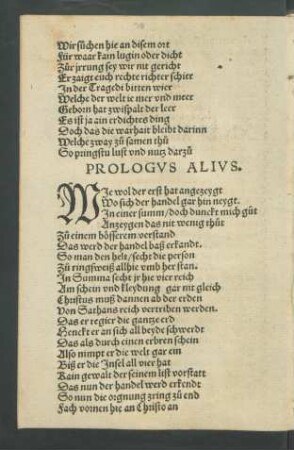 Wir sůchen hie an disem ort
Für waar kain lugin oder dicht
Zůr jrrung sey wir nit gericht
Er zaigt euch rechte richter schier
In der Tragedi bitten wier
Welche der welt ie mer vnd meer
Geborn hat zwispalt der leer
Es ist ja ain erdichtes ding
Doch das die warhait bleibt darinn
Welche zway zů samen thů
So pringstu lust vnd nutz darzů
PROLOGVS ALIVS.
WIe wol der erst hat angezeygt
Wo sich der handel gar hin neygt.
In einer summ/ doch dunckt mich gůt
Anzeygen das nit wenig thůt
Zů einem bösserem verstand
Das werd der handel baß erkandt.
So man den helt/ secht die person
Zů ringsweiß allhie vmb her stan.
In Summa secht jr hie vier reich
Am schein vnd kleydung gar nit gleich
Christus můß dannen ab der erden
Von Sathans reich vertriben werden.
Das er regier die gantze erd
Henckt er an sich all beyde schwerdt
Das als durch einen erbren schein
Also nimpt er die welt gar ein
Biß er die Insel all vier hat
Kain gewalt der seinem list vorstatt
Das nun der handel werd erkendt
So nun die orgnung zring zů end
Fach vornen hie an Christo an